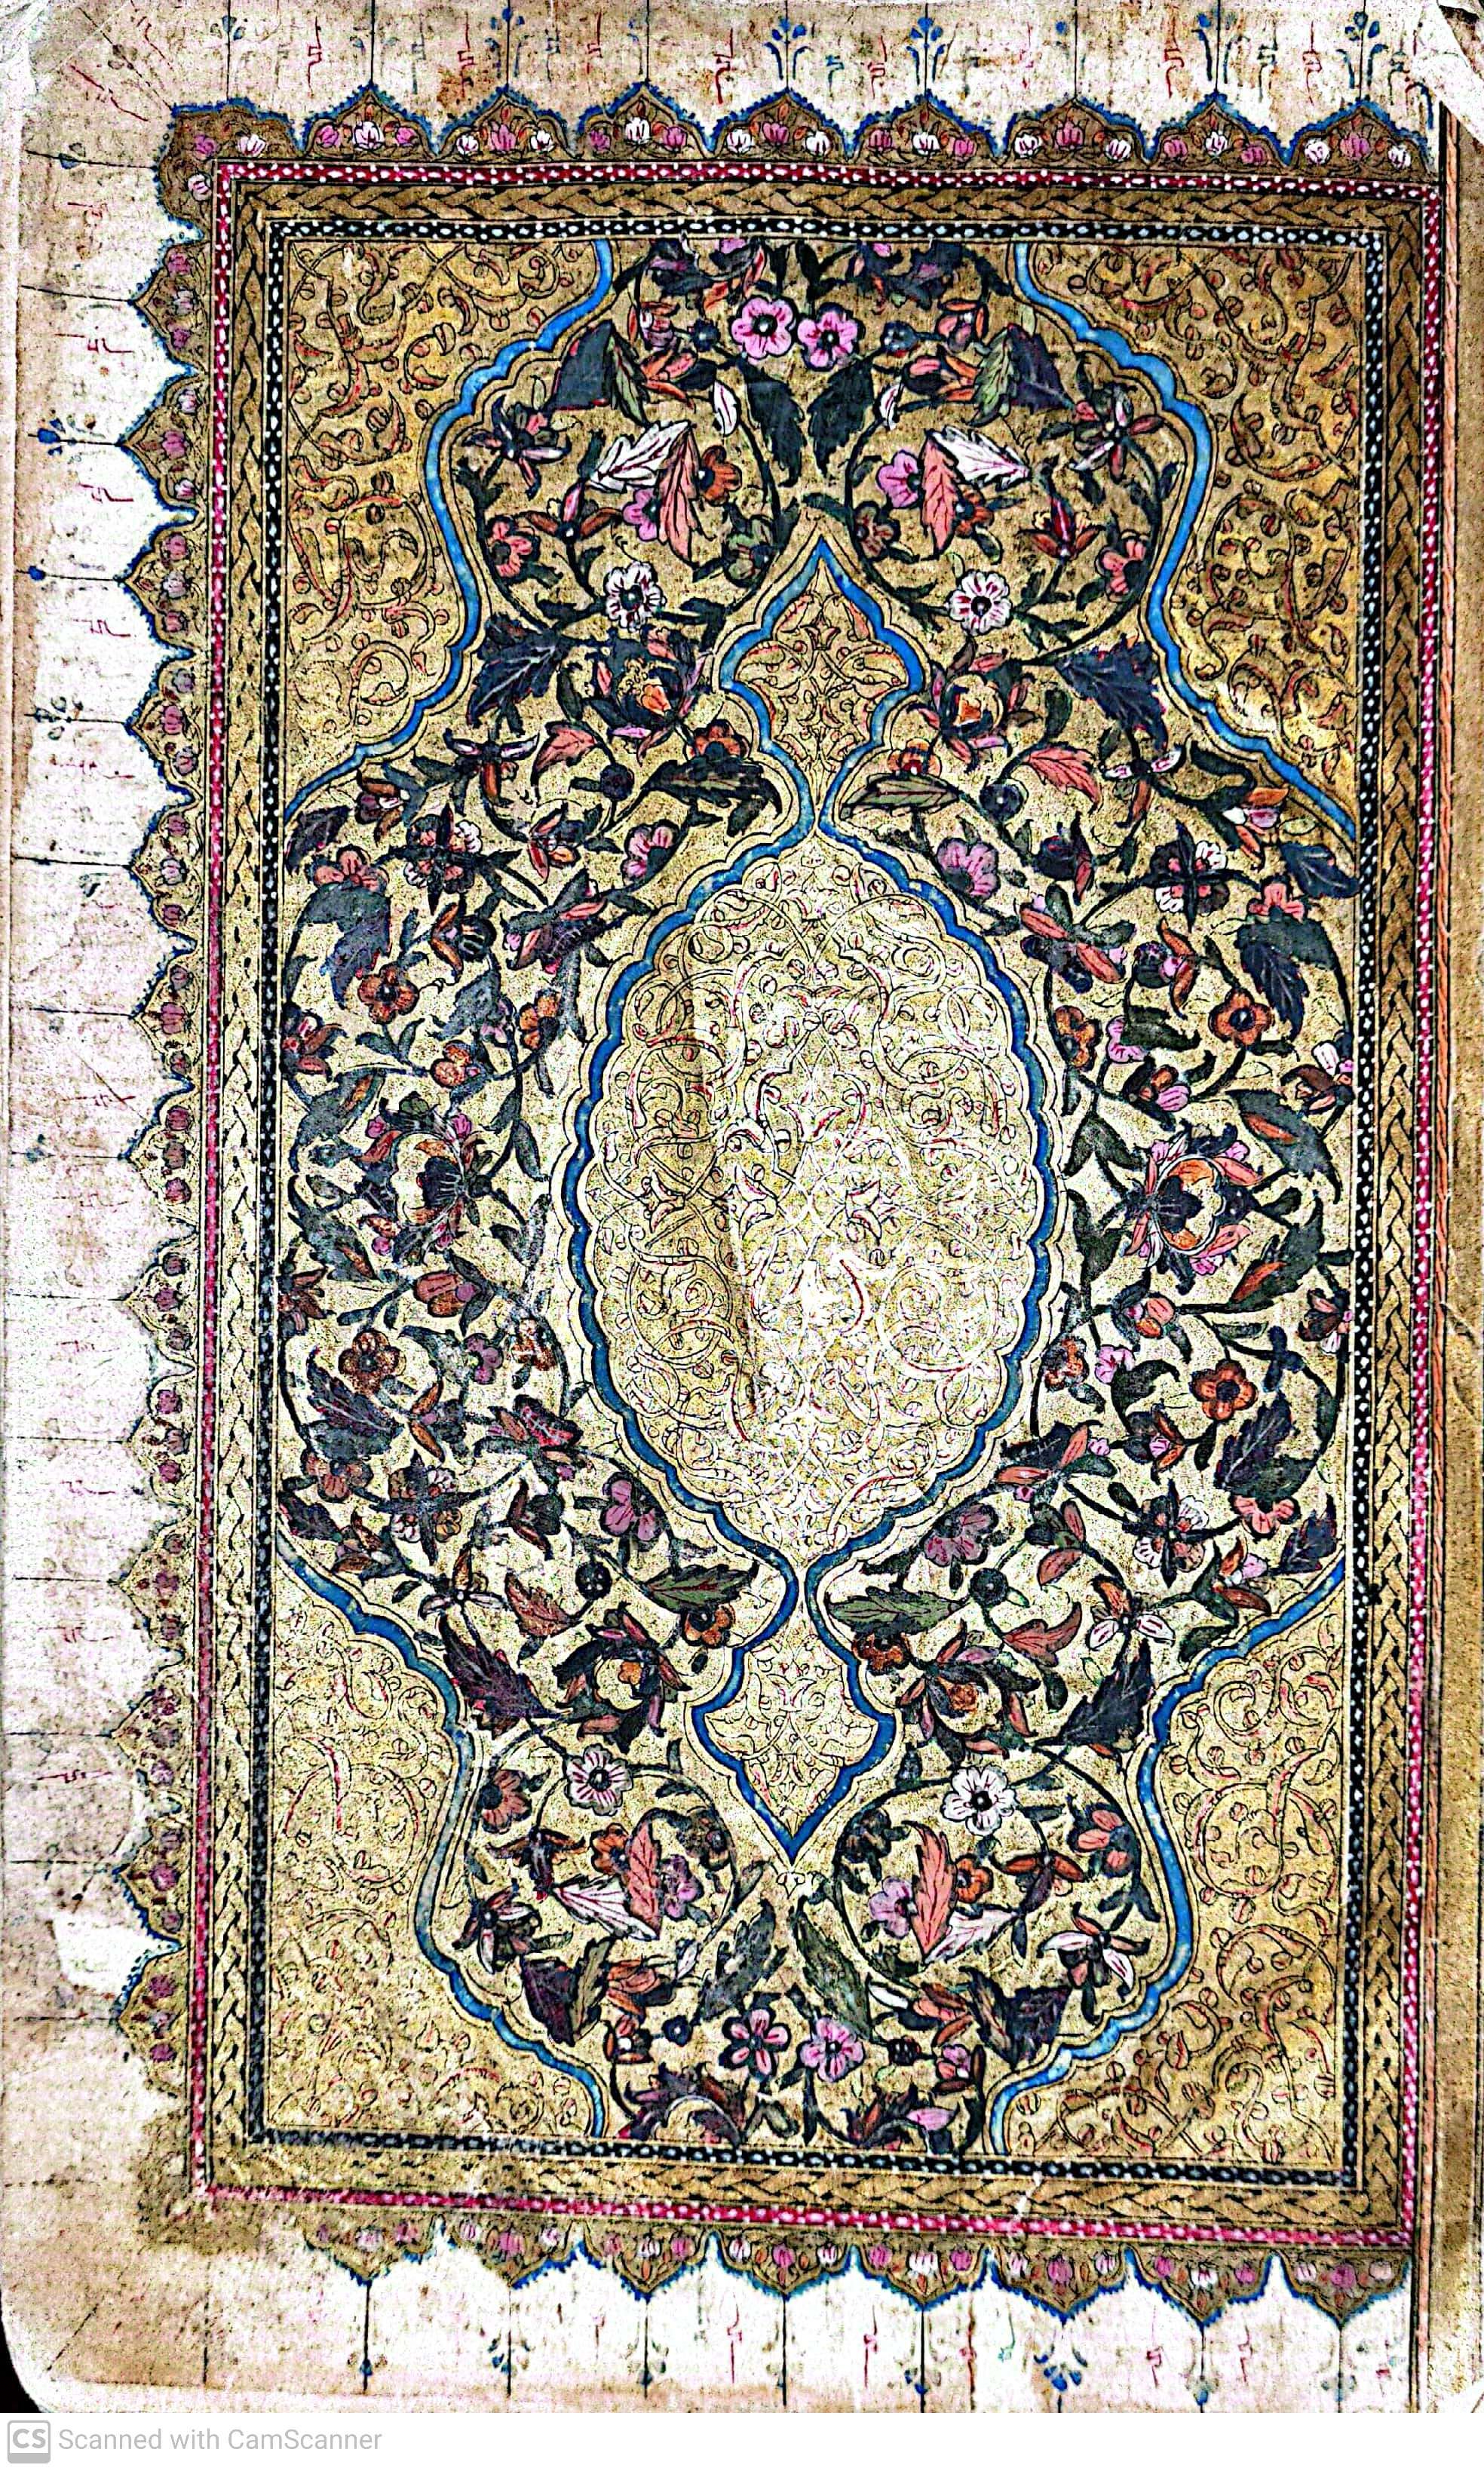 CS Scanned with CamScanner